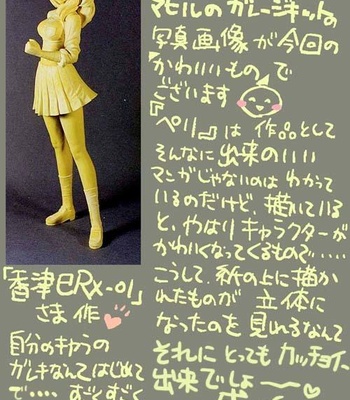 マヒルのガレージキットの
写真画像が今回の
「かわいいもの」で
ございます
『ペリ』は作品として
そんなに出来のいい
マンガじゃないのはわかって
いるのだけど、描いている
と、やはりキャラクターが
かわいくなってくるもので・・・・・
こうして、紙の上に描か
れたものが立体に
なったのを見れるなんて
それにとってもカッチョイー
出来でしょ――
「香津巳RX-01」
さま作
自分のキャラの
ガレキなんてはじめて
で・・・・すごくすごく